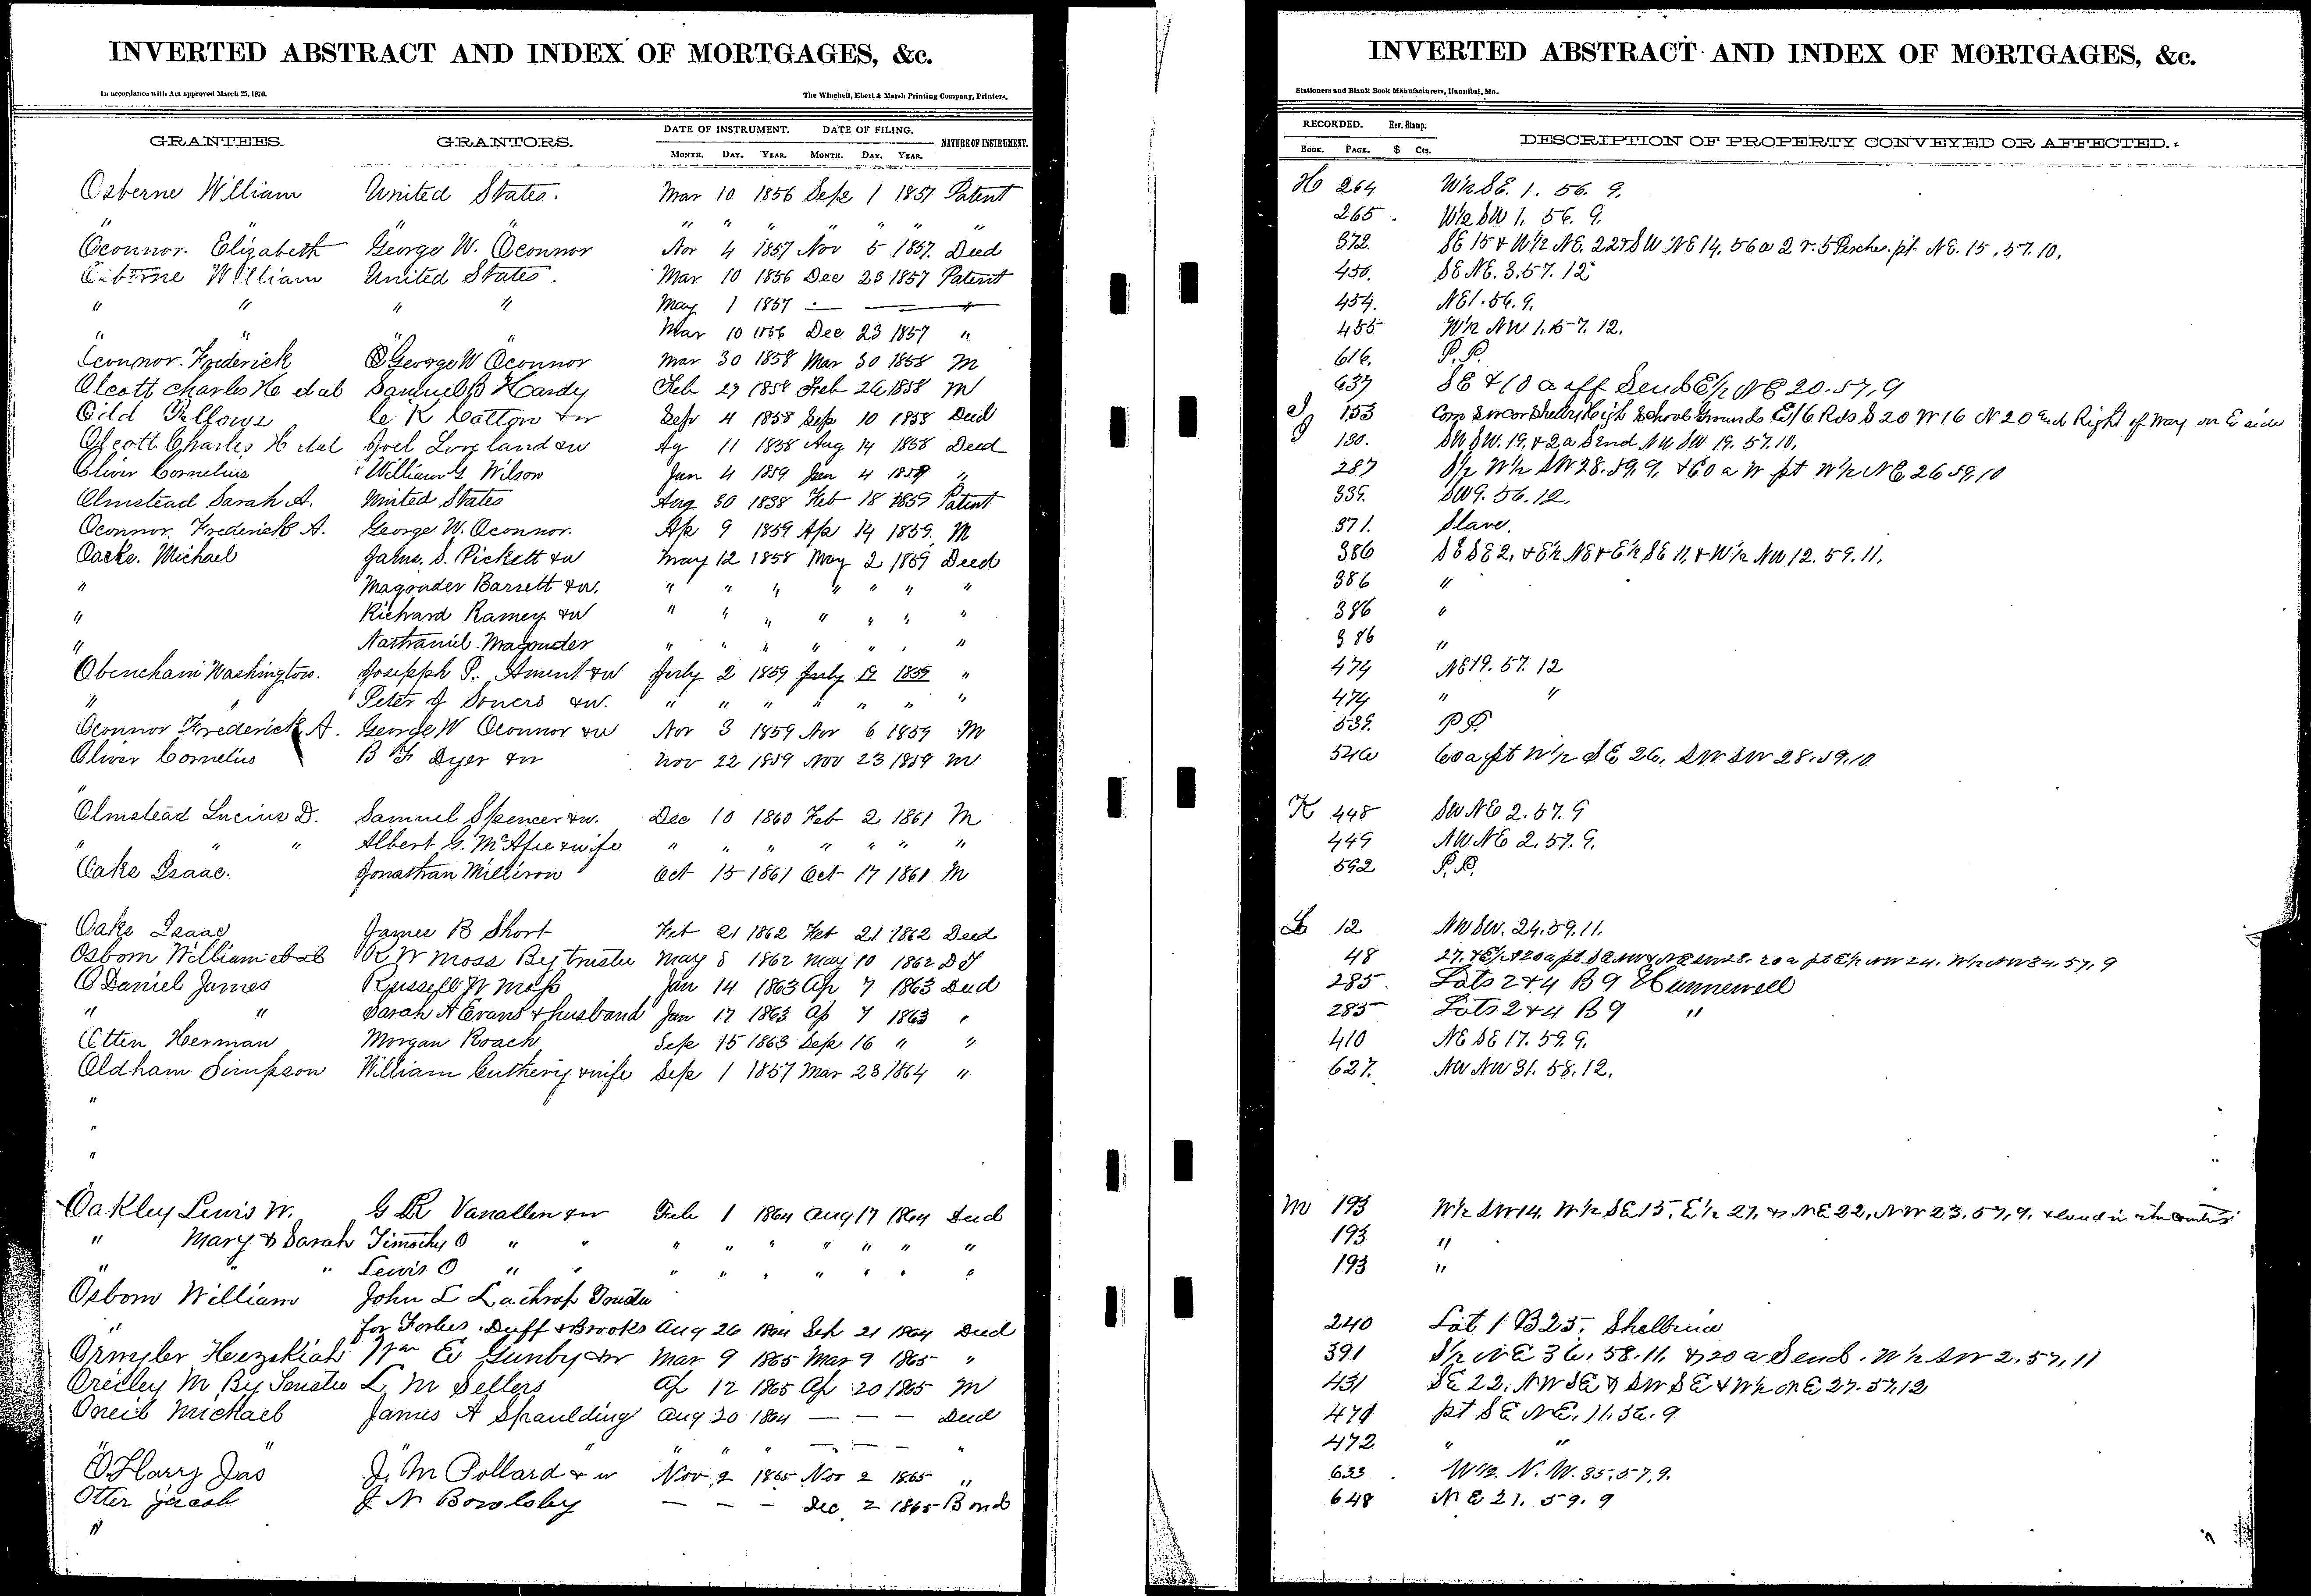 INVERTED ABSTRACT AND INDEX OF MORTGAGES, &c.
In accordance with Act approved March 25, 1870. The Winchell, Ebert & Marsh Printing Company, Printers,
GRANTEES. GRANTORS. DATE OF INSTRUMENT. DATE OF FILING. NATURE OF INSTRUMENT.
MONTH. DAY. YEAR. MONTH. DAY. YEAR.
Osberne William United States. Mar 10 1856 Sept 1 1857 Patent
" " " " " " "
Oconnor. Elizabeth George W. Oconnor Nov 4 1857 Nov 5 1857. Deed
William United States. Mar 10 1856 Dec 23 1857 Patent
" " " " May 1 1857 — — "
" " " " Mar 10 1856 Dec 23 1857 "
Oconnor. Frederick George W Oconnor Mar 30 1858 Mar 30 1858 M
Olcott Charles H et al Samuel B Hardy Feb 27 1858 Feb 26 1858 M
Odd Fellows C. K Cotton & w Sept 4 1858 Sept 10 1858 Deed
Olcott Charles H et al Joel Loveland & w Ag 11 1858 Aug 14 1858 Deed
Oliver Cornelius William G Wilson Jan 4 1859 Jan 4 1859 "
Olmstead Sarah A. United States Aug 30 1838 Feb 18 1859 Patent
Oconnor. Frederick A. George W. Oconnor. Ap 9 1859 Ap 14 1859. M
Oake. Michael James. S. Pickett & w May 12 1858 May 2 1859 Deed
" Magruder Barrett & w. " " " " " " "
" Richard Ramey & w " " " " " " "
" Nathaniel Magruder " " " " " " "
Obenchain Washington. Josepph P. Ament & w July 2 1859 July 12 1859 "
" " Peter J Soners & w. " " " " " " "
Oconnor Frederick A. George W Oconnor & w Nov 3 1859 Nov 6 1859 M
Oliver Cornelius B F Dyer & w Nov 22 1859 Nov 23 1859 M
Olmstead Lucius D. Samuel Spencer & w. Dec 10 1860 Feb 2 1861 M
" " " Albert G. McAfee & wife " " " " " " "
Oake Isaac. Jonathan Millison Oct 15 1861 Oct 17 1861 M
Oake Isaac James B Short Feb 21 1862 Feb 21 1862 Deed
Osborn William et al R W Moss By trustee May 8 1862 May 10 1862 D T
O Daniel James Russell W Moss Jan 14 1863 Ap 7 1863 Deed
" " Sarah A Evans & husband Jan 17 1863 Ap 7 1863 "
Otten Herman Morgan Roach Sept 15 1863 Sept 16 " "
Oldham Simpson William Cuthery & wife Sept 1 1857 Mar 23 1864 "
"
"
"
Oakley Lewis W. G R Vanallen & w Feb 1 1864 Aug 17 1864 Deed
" Mary & Sarah Timothy O " " " " " " " " "
" " Lewis O " " " " " " " " "
Osborn William John L Lathrop Trustee
for Forbes. Duff & Brooks Aug 26 1864 Sep 21 1864 Deed
Hezekiah Wm E Gunby & w Mar 9 1865 Mar 9 1865 "
M By Trustee L. M Sellers Ap 12 1865 Ap 20 1865 M
Oneil Michael James A Spaulding Aug 20 1864 — — — Deed
" " " " " — — — "
O Harry Jas J. M Pollard & w Nov 2 1865 Nov 2 1865 "
Otter Jacob J N Bowlsby — — — Dec 2 1865 Bond
"
INVERTED ABSTRACT AND INDEX OF MORTGAGES, &c.
Stationers and Blank Book Manufacturers, Hannibal, Mo.
RECORDED. Rev. Stamp. DESCRIPTION OF PROPERTY CONVEYED OR AFFECTED.
BOOK. PAGE. $ Cts.
H 264 W½ SE. 1. 56. 9.
265 W½ SW 1. 56. 9.
372. SE 15 & W½ NE. 22 & SW NE 14. 56 a 2 r. 5 Perches. pt. NE. 15. 57. 10.
450. SE NE. 3. 57. 12
454. NE 1. 56. 9.
455 W½ NW 1. 57. 12.
616. P. P.
637 SE & 10 a off S end E½ NE 20. 57, 9
I 153 Com S W cor Shelby High School Grounds E 16 Rds S 20 W 16 N 20 and Right of Way on E side
J 130. SW SW. 19. & 2 a S end NW SW 19. 57. 10.
287 S½ W½ SW 28. 59. 9. & 60 a W pt W½ NE 26 59, 10
339. SW 9. 56. 12.
371. Slave.
386 SE SE 2, & E½ NE & E½ SE 11, & W½ NW 12. 59. 11.
386 "
386 "
386 "
474 NE 19. 57. 12
474 " "
539. P P.
546 60 a pt W½ SE 26, SW SW 28. 59. 10
K 448 SW NE 2. 57. 9
449 NW NE 2. 57. 9.
592 P. P.
L 12 NW SW. 24. 59. 11.
48 24. W½ NW 34. 57, 9
285. Lots 2 & 4 B 9 Hunnewell
285 Lots 2 & 4 B 9 "
410 NE SE 17. 59. 9.
627. NW NW 31. 58. 12.
M 193 W½ SW 14. W½ SE 15, E½ 27. & NE 22, NW 23. 57, 9. & land in
193 "
193 "
240 Lot 1 B 25. Shelbina
391 S½ NE 36. 58. 11. & 20 a S end. W½ SW 2. 57, 11
431 SE 22. NW SE & SW SE & W½ NE 27. 57, 12
471 pt SE NE. 11. 56. 9
472 " "
633 W½ N. W. 35. 57, 9.
648 N E 21. 59. 9